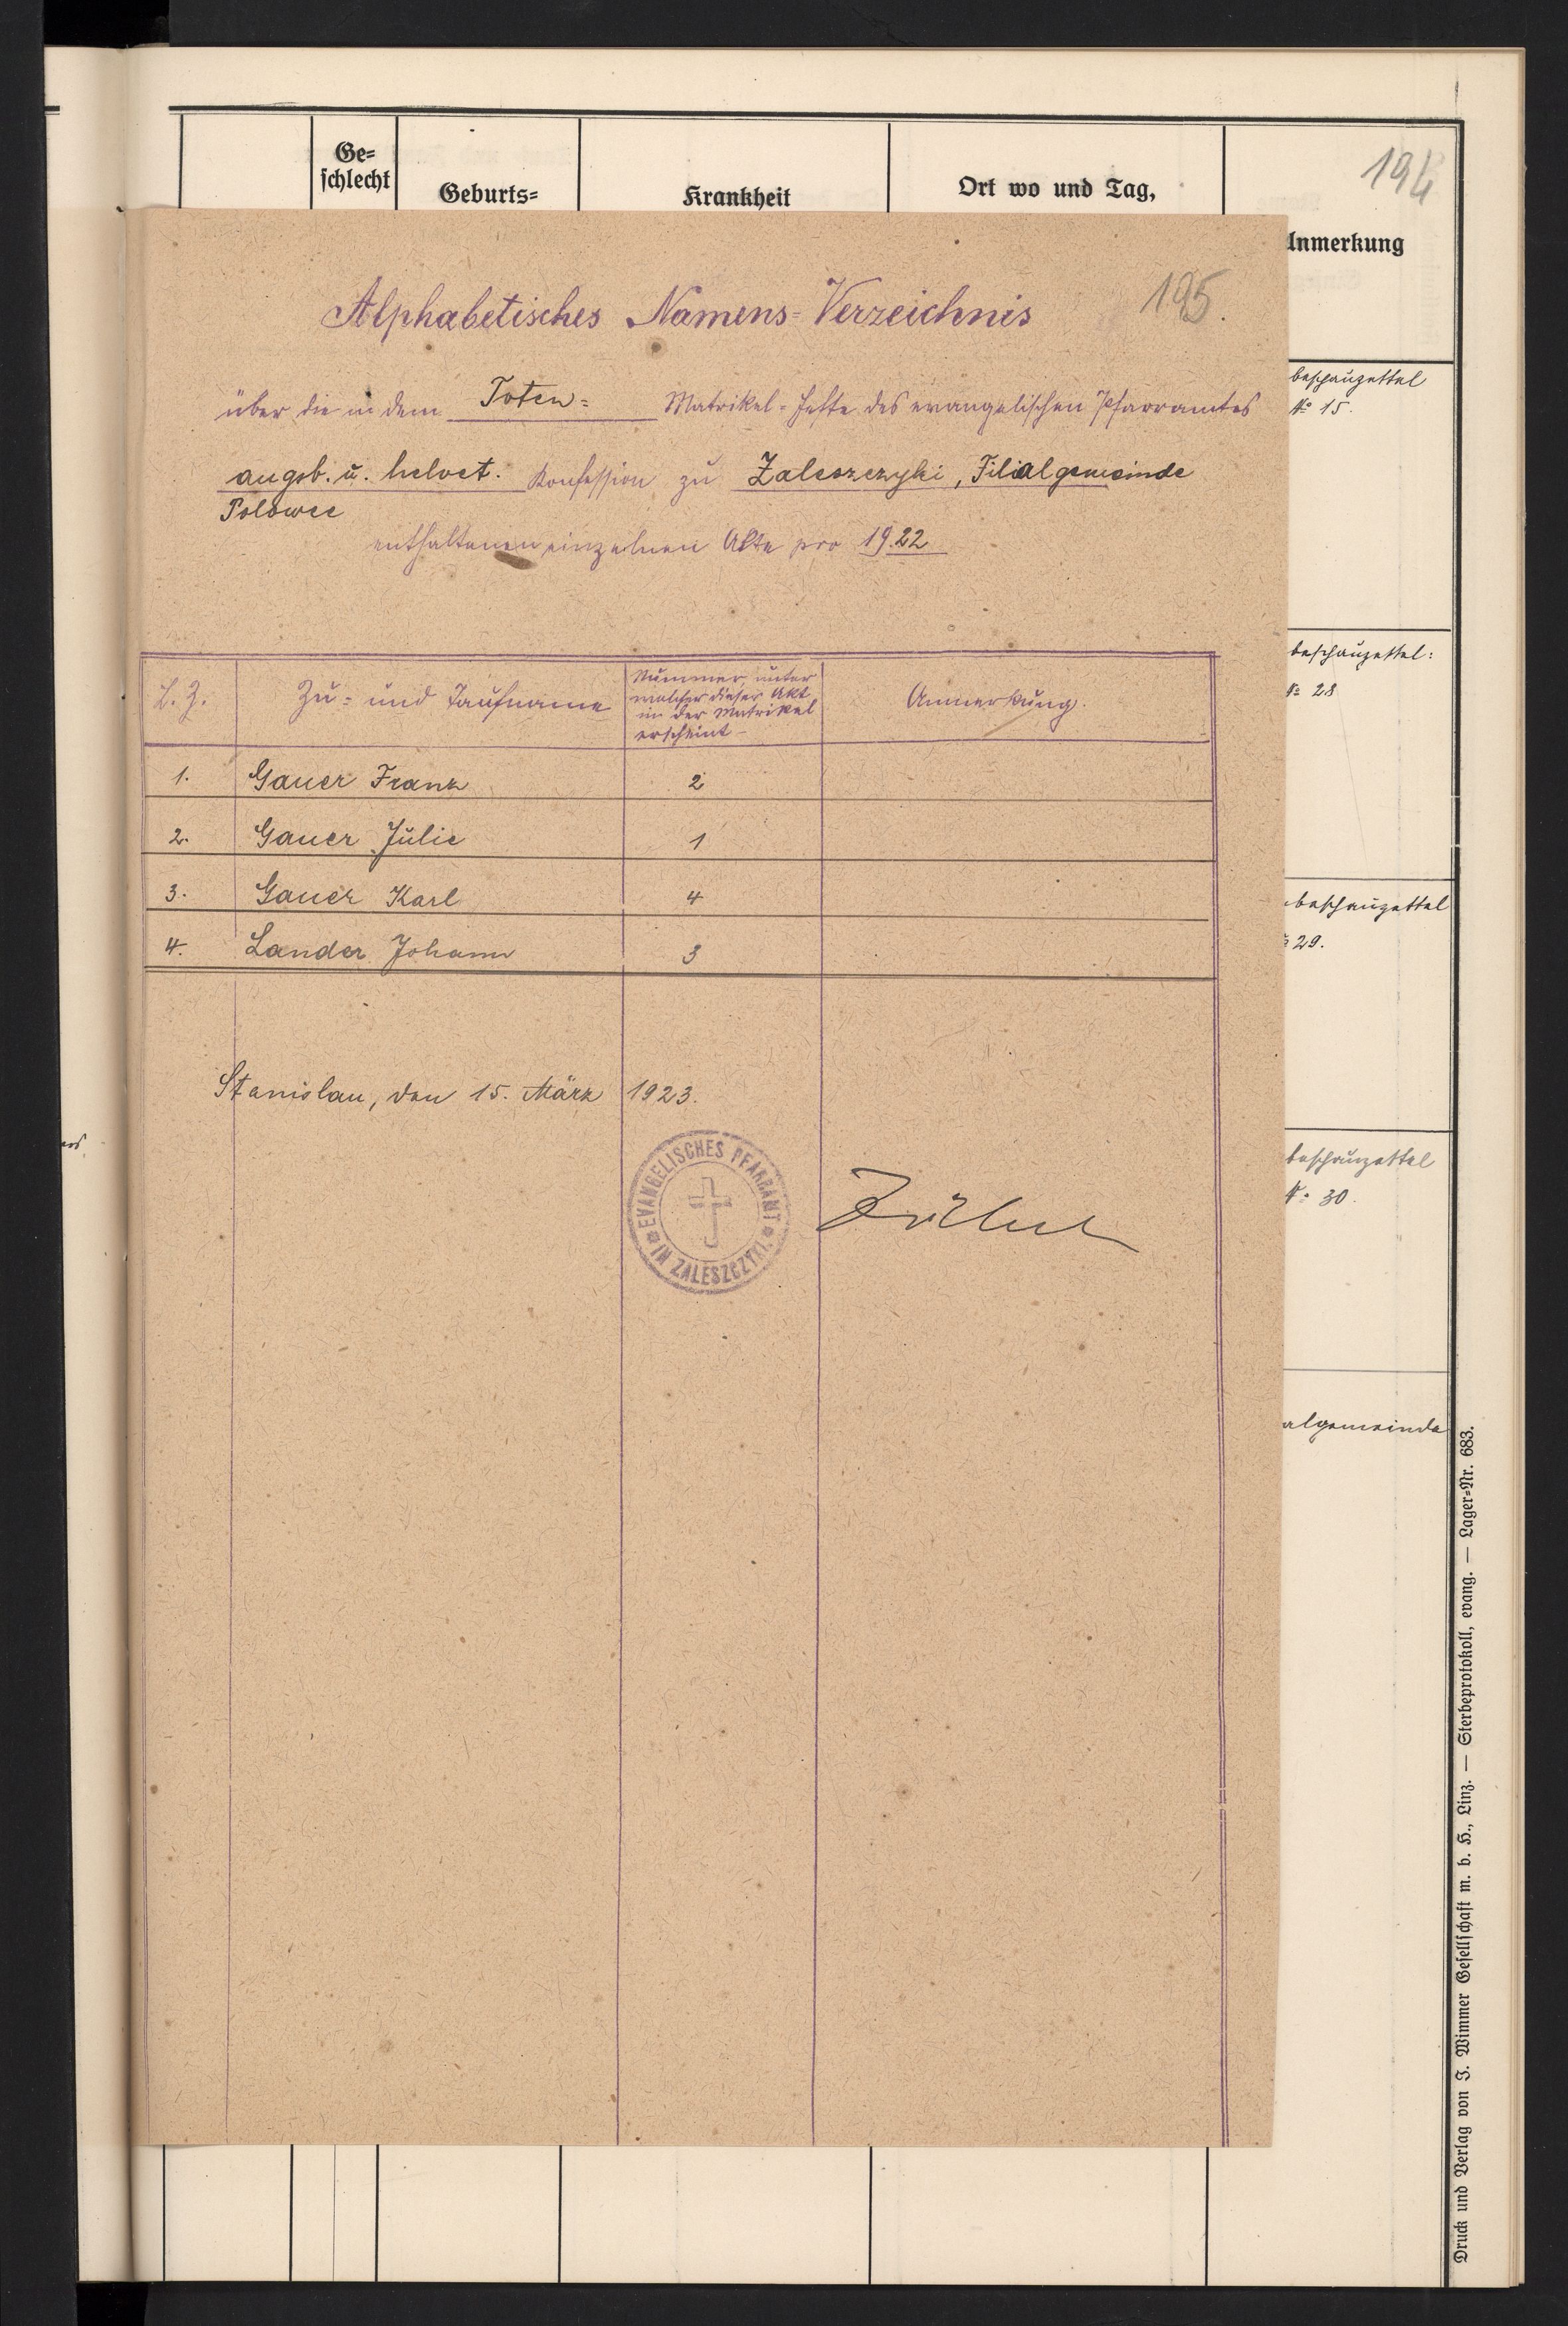 194
Ge=
schlecht
Geburts=
Krankheit
Ort wo und Tag,
Anmerkung
195.
Alphabetisches Namens=Verzeichnis
über die in dem Toten= Matrikel=Hefte des evangelischen Pfarramtes
augsb. u. helvet. Konfession zu Zaleszczyki, Filialgemeinde
Polowce
enthaltenen einzelnen Akte pro 1922
L. Z.
Zu= und Taufname
Nummer, unter
welcher dieser Akt
in der Matrikel
erscheint
Anmerkung.
1. Gauer Franz 2
2. Gauer Julie 1
3. Gauer Karl 4
4. Lander Johann 3
Stanislau, den 15. März 1923.
EVANGELISCHES PFARRAMT
IN ZALESZCZYKI
beschauzettel
No 15.
beschauzettel:
No 28
beschauzettel
29.
beschauzettel
No 30.
algemeinde
Druck und Verlag von J. Wimmer Gesellschaft m. b. H., Linz. — Sterbeprotokoll, evang. — Lager=Nr. 683.